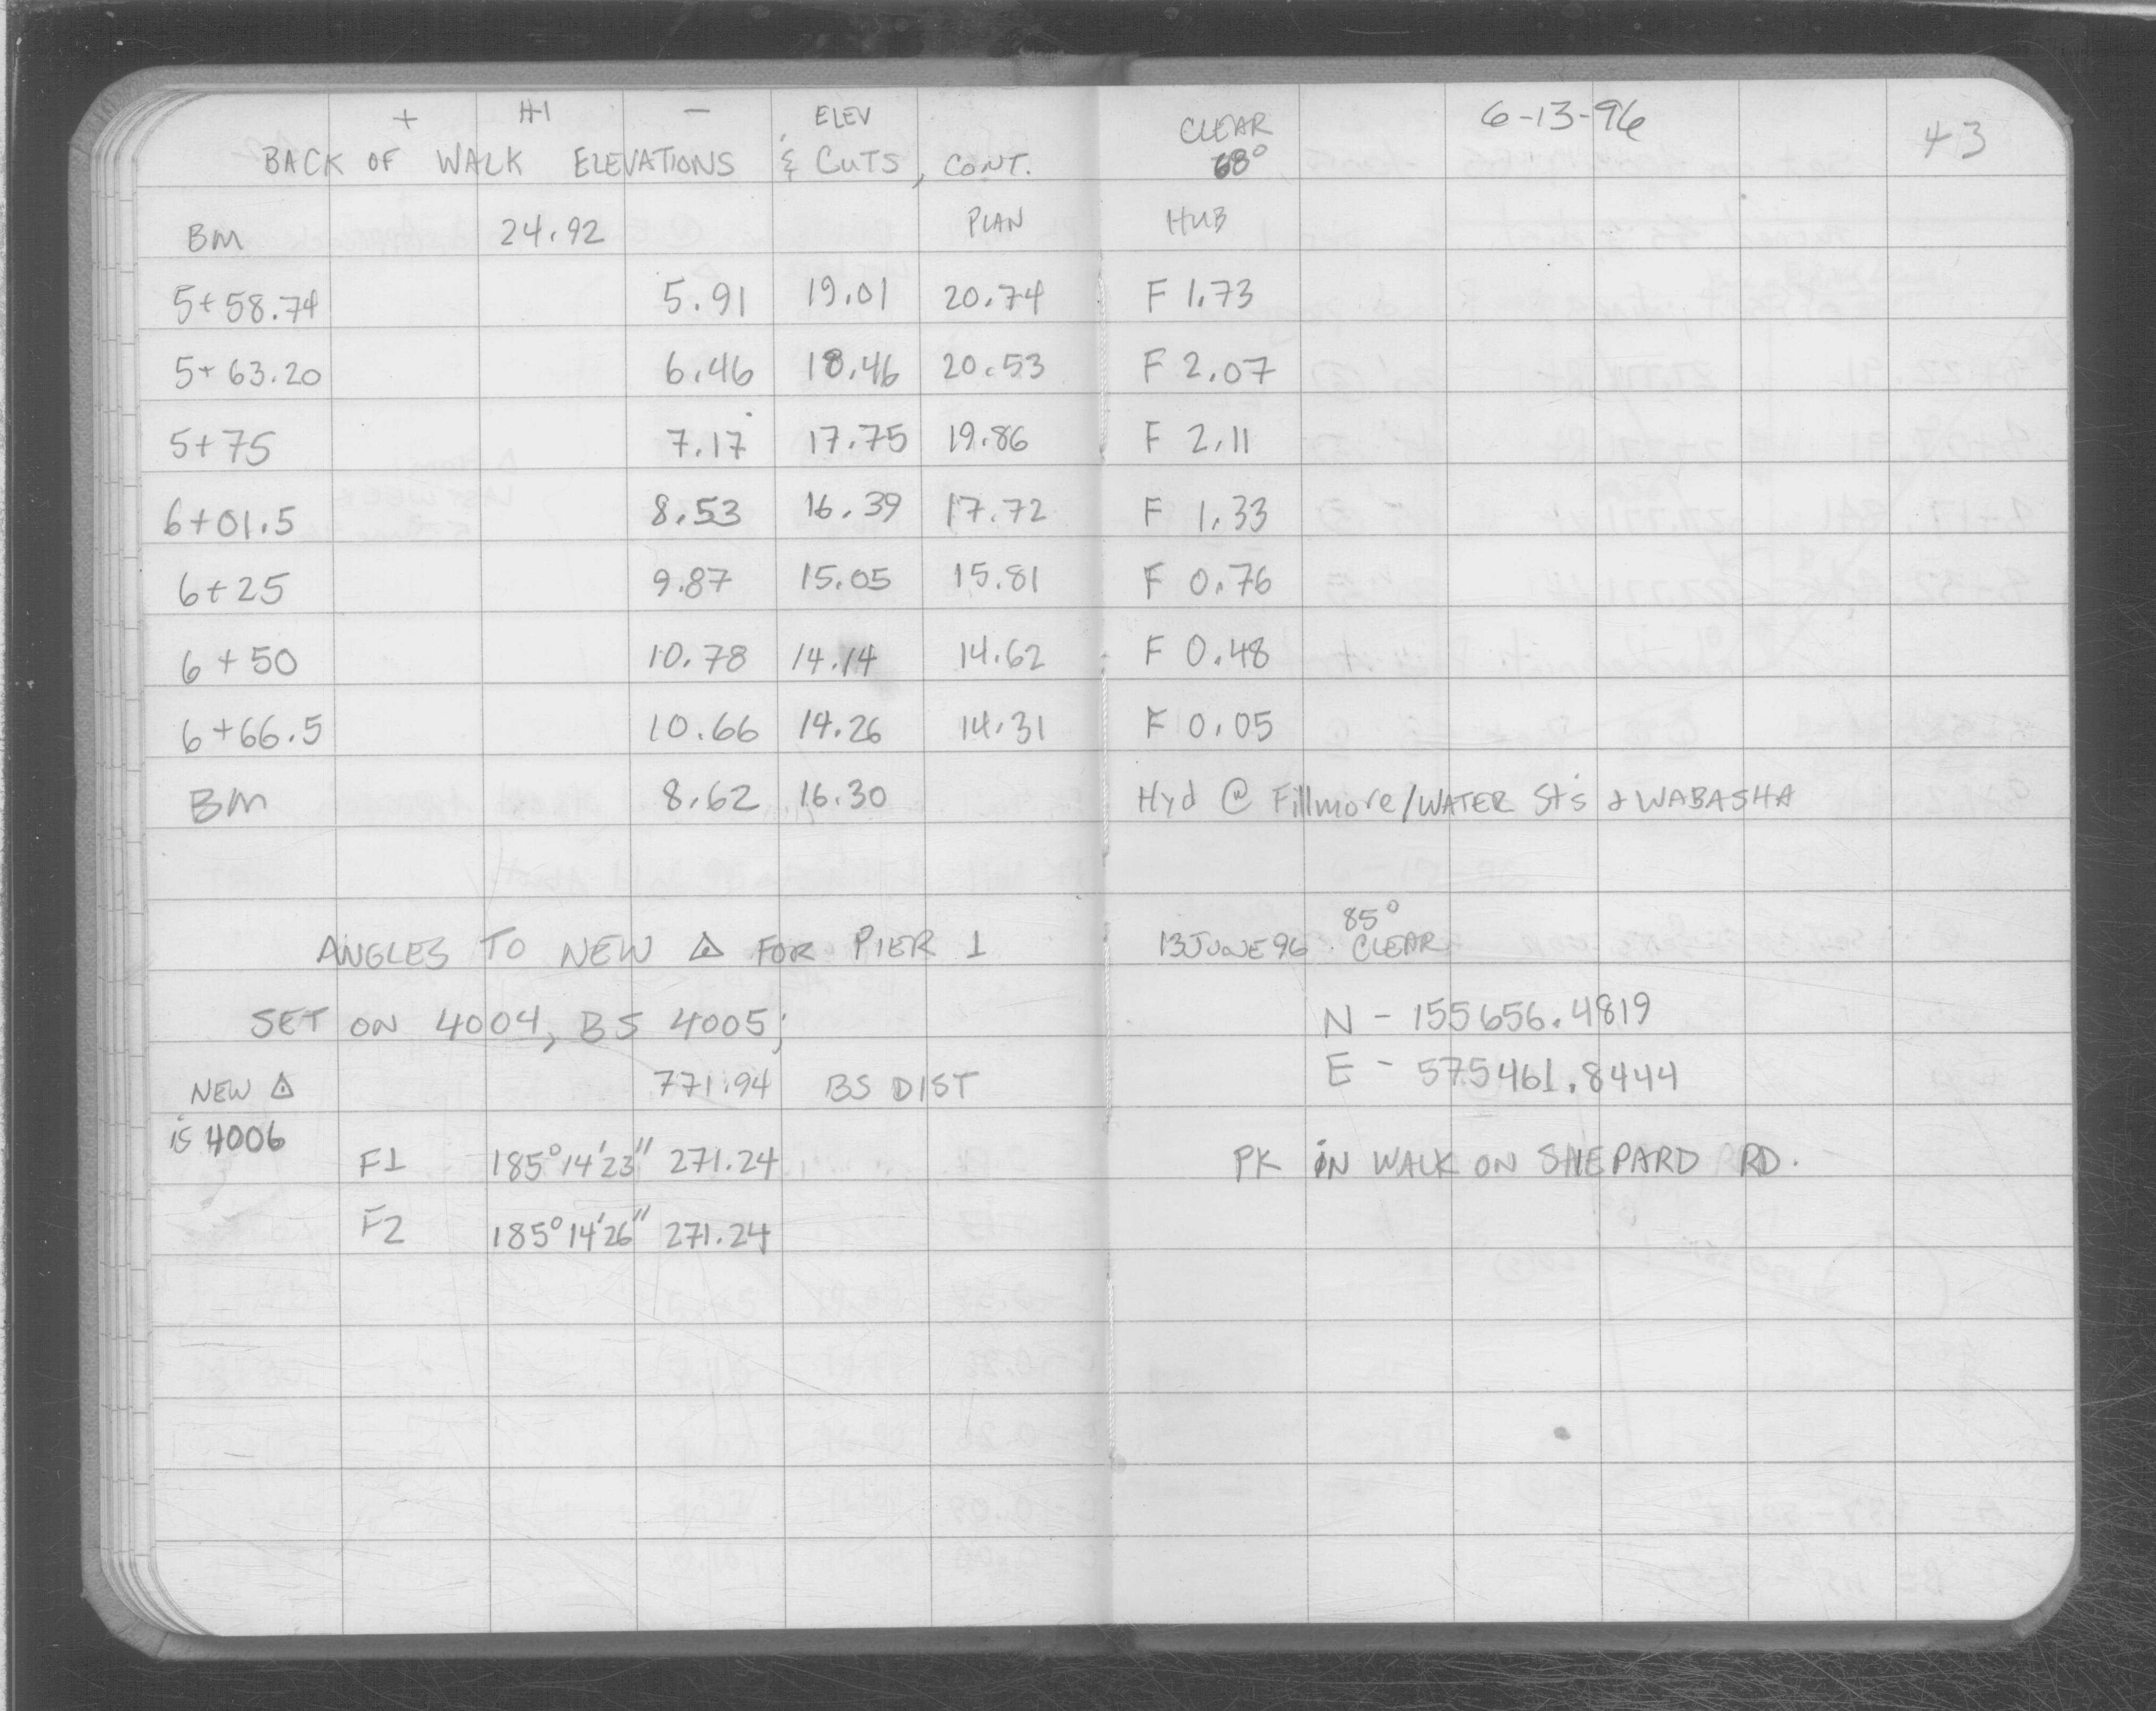 + HI - ELEV CLEAR 6-13-96 43
BACK OF WALK ELEVATIONS & CUTS, CONT. 68°
BM 24.92 PLAN HUB
5+58.74 5.91 19.01 20.74 F 1.73
5+63.20 6.46 18.46 20.53 F 2.07
5+75 7.17 17.75 19.86 F 2.11
6+01.5 8.53 16.39 17.72 F 1.33
6+25 9.87 15.05 15.81 F 0.76
6+50 10.78 14.14 14.62 F 0.48
6+66.5 10.66 14.26 14.31 F 0.05
BM 8.62 16.30 Hyd @ Fillmore/WATER St's & WABASHA
85°
ANGLES TO NEW △ FOR PIER 1 13JUNE96 CLEAR
SET ON 4004, BS 4005; N - 155656.4819
NEW △ 771.94 BS DIST E - 575461.8444
is 4006
F1 185°14'23" 271.24 PK iN WALK ON SHEPARD RD.
F2 185°14'26" 271.24